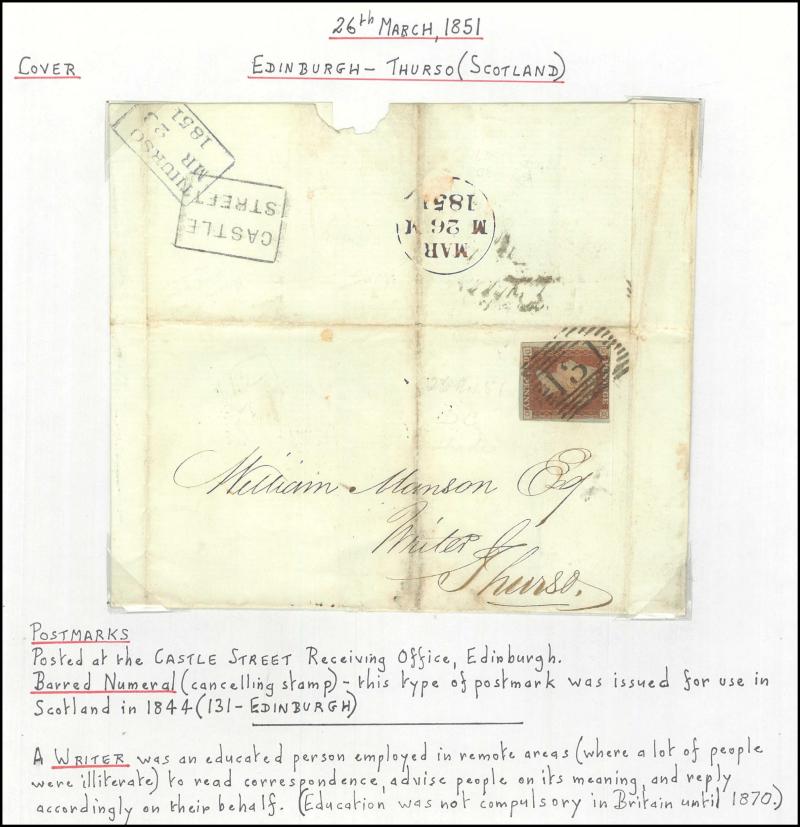 26th March, 1851
Cover
Edinburgh - Thurso (Scotland)
THURSO
MR 23
1851
CASTLE
STREET
MAR
M 26 M
1851
131
William Manson Esq
Writer
Thurso.
Postmarks
Posted at the Castle Street Receiving Office, Edinburgh.
Barred Numeral (cancelling stamp) - this type of postmark was issued for use in
Scotland in 1844 (131 - Edinburgh)
A Writer was an educated person employed in remote areas (where a lot of people
were illiterate) to read correspondence, advise people on its meaning, and reply
accordingly on their behalf. (Education was not compulsory in Britain until 1870.)